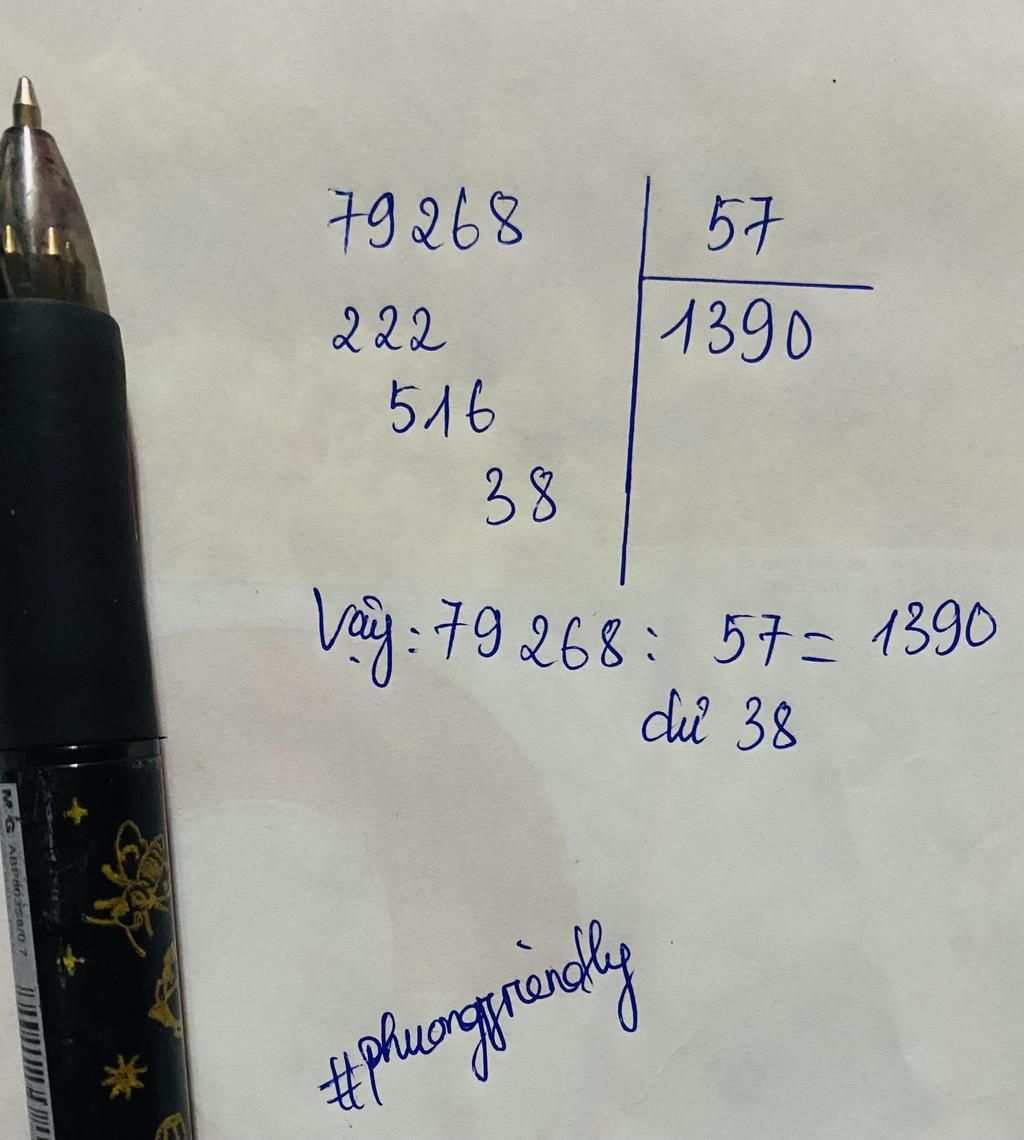 79268 57
222 1390
516
38
Vậy: 79 268 : 57 = 1390
dư 38
#phuongfriendly
M&G ABP803S8/0.7